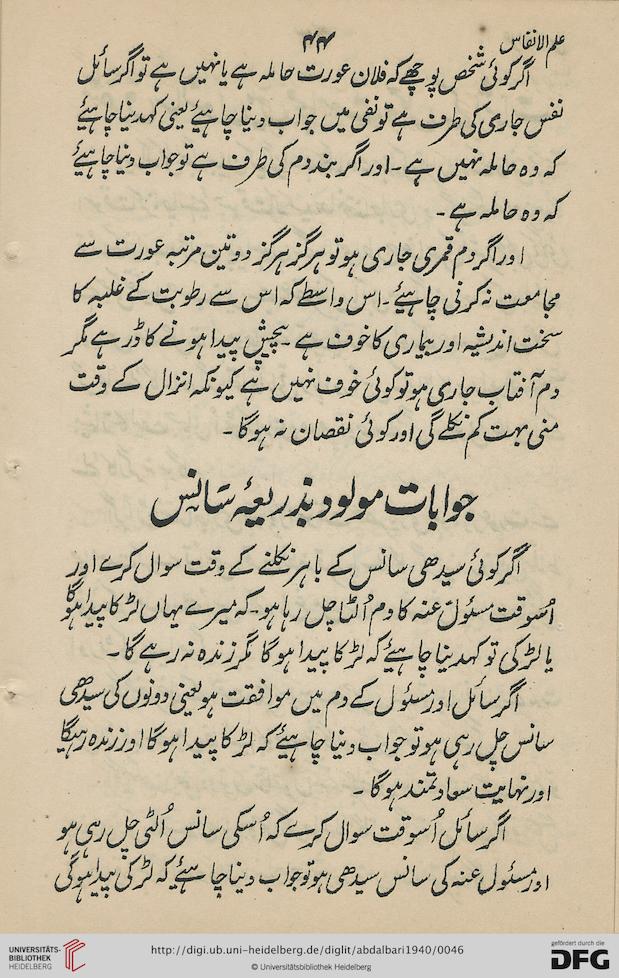 علم الانفاس
۴۴
اگر کوئی شخص پوچھے کہ فلان عورت حاملہ ہے یا نہیں ہے تو اگر سائل
نفس جاری کی طرف ہے تو نفی میں جواب دینا چاہیئے یعنی کہدینا چاہیئے
کہ وہ حاملہ نہیں ہے ۔ اور اگر بند دم کی طرف ہے تو جواب دینا چاہیئے
کہ وہ حاملہ ہے ۔
اور اگر دم قمری جاری ہو تو ہرگز ہرگز دو تین مرتبہ عورت سے
مجامعت نہ کرنی چاہیئے ۔ اس واسطے کہ اس سے رطوبت کے غلبہ کا
سخت اندیشہ اور بیماری کا خوف ہے ۔ پیچیش پیدا ہونے کا ڈر ہے مگر
دم آفتاب جاری ہو تو کوئی خوف نہیں ہے کیونکہ انزال کے وقت
منی بہت کم نکلے گی اور کوئی نقصان نہ ہوگا ۔
جوابات مولود بذریعۂ سانس
اگر کوئی سیدھی سانس کے باہر نکلنے کے وقت سوال کرے اور
اسوقت مسئول عنہ کا دم اُلٹا چل رہا ہو ۔ کہ میرے یہاں لڑکا پیدا ہوگا
یا لڑکی تو کہدینا چاہیئے کہ لڑکا پیدا ہوگا مگر زندہ نہ رہے گا ۔
اگر سائل اور مسئول کے دم میں موافقت ہو یعنی دونوں کی سیدھی
سانس چل رہی ہو تو جواب دینا چاہیئے کہ لڑکا پیدا ہوگا اور زندہ رہیگا
اور نہایت سعادتمند ہوگا ۔
اگر سائل اُسوقت سوال کرے کہ اُسکی سانس اُلٹی چل رہی ہو
اور مسئول عنہ کی سانس سیدھی ہو تو جواب دینا چاہیئے کہ لڑکی پیدا ہوگی
UNIVERSITÄTS-
BIBLIOTHEK
HEIDELBERG
http://digi.ub.uni-heidelberg.de/diglit/abdalbari1940/0046
© Universitätsbibliothek Heidelberg
gefördert durch die
DFG